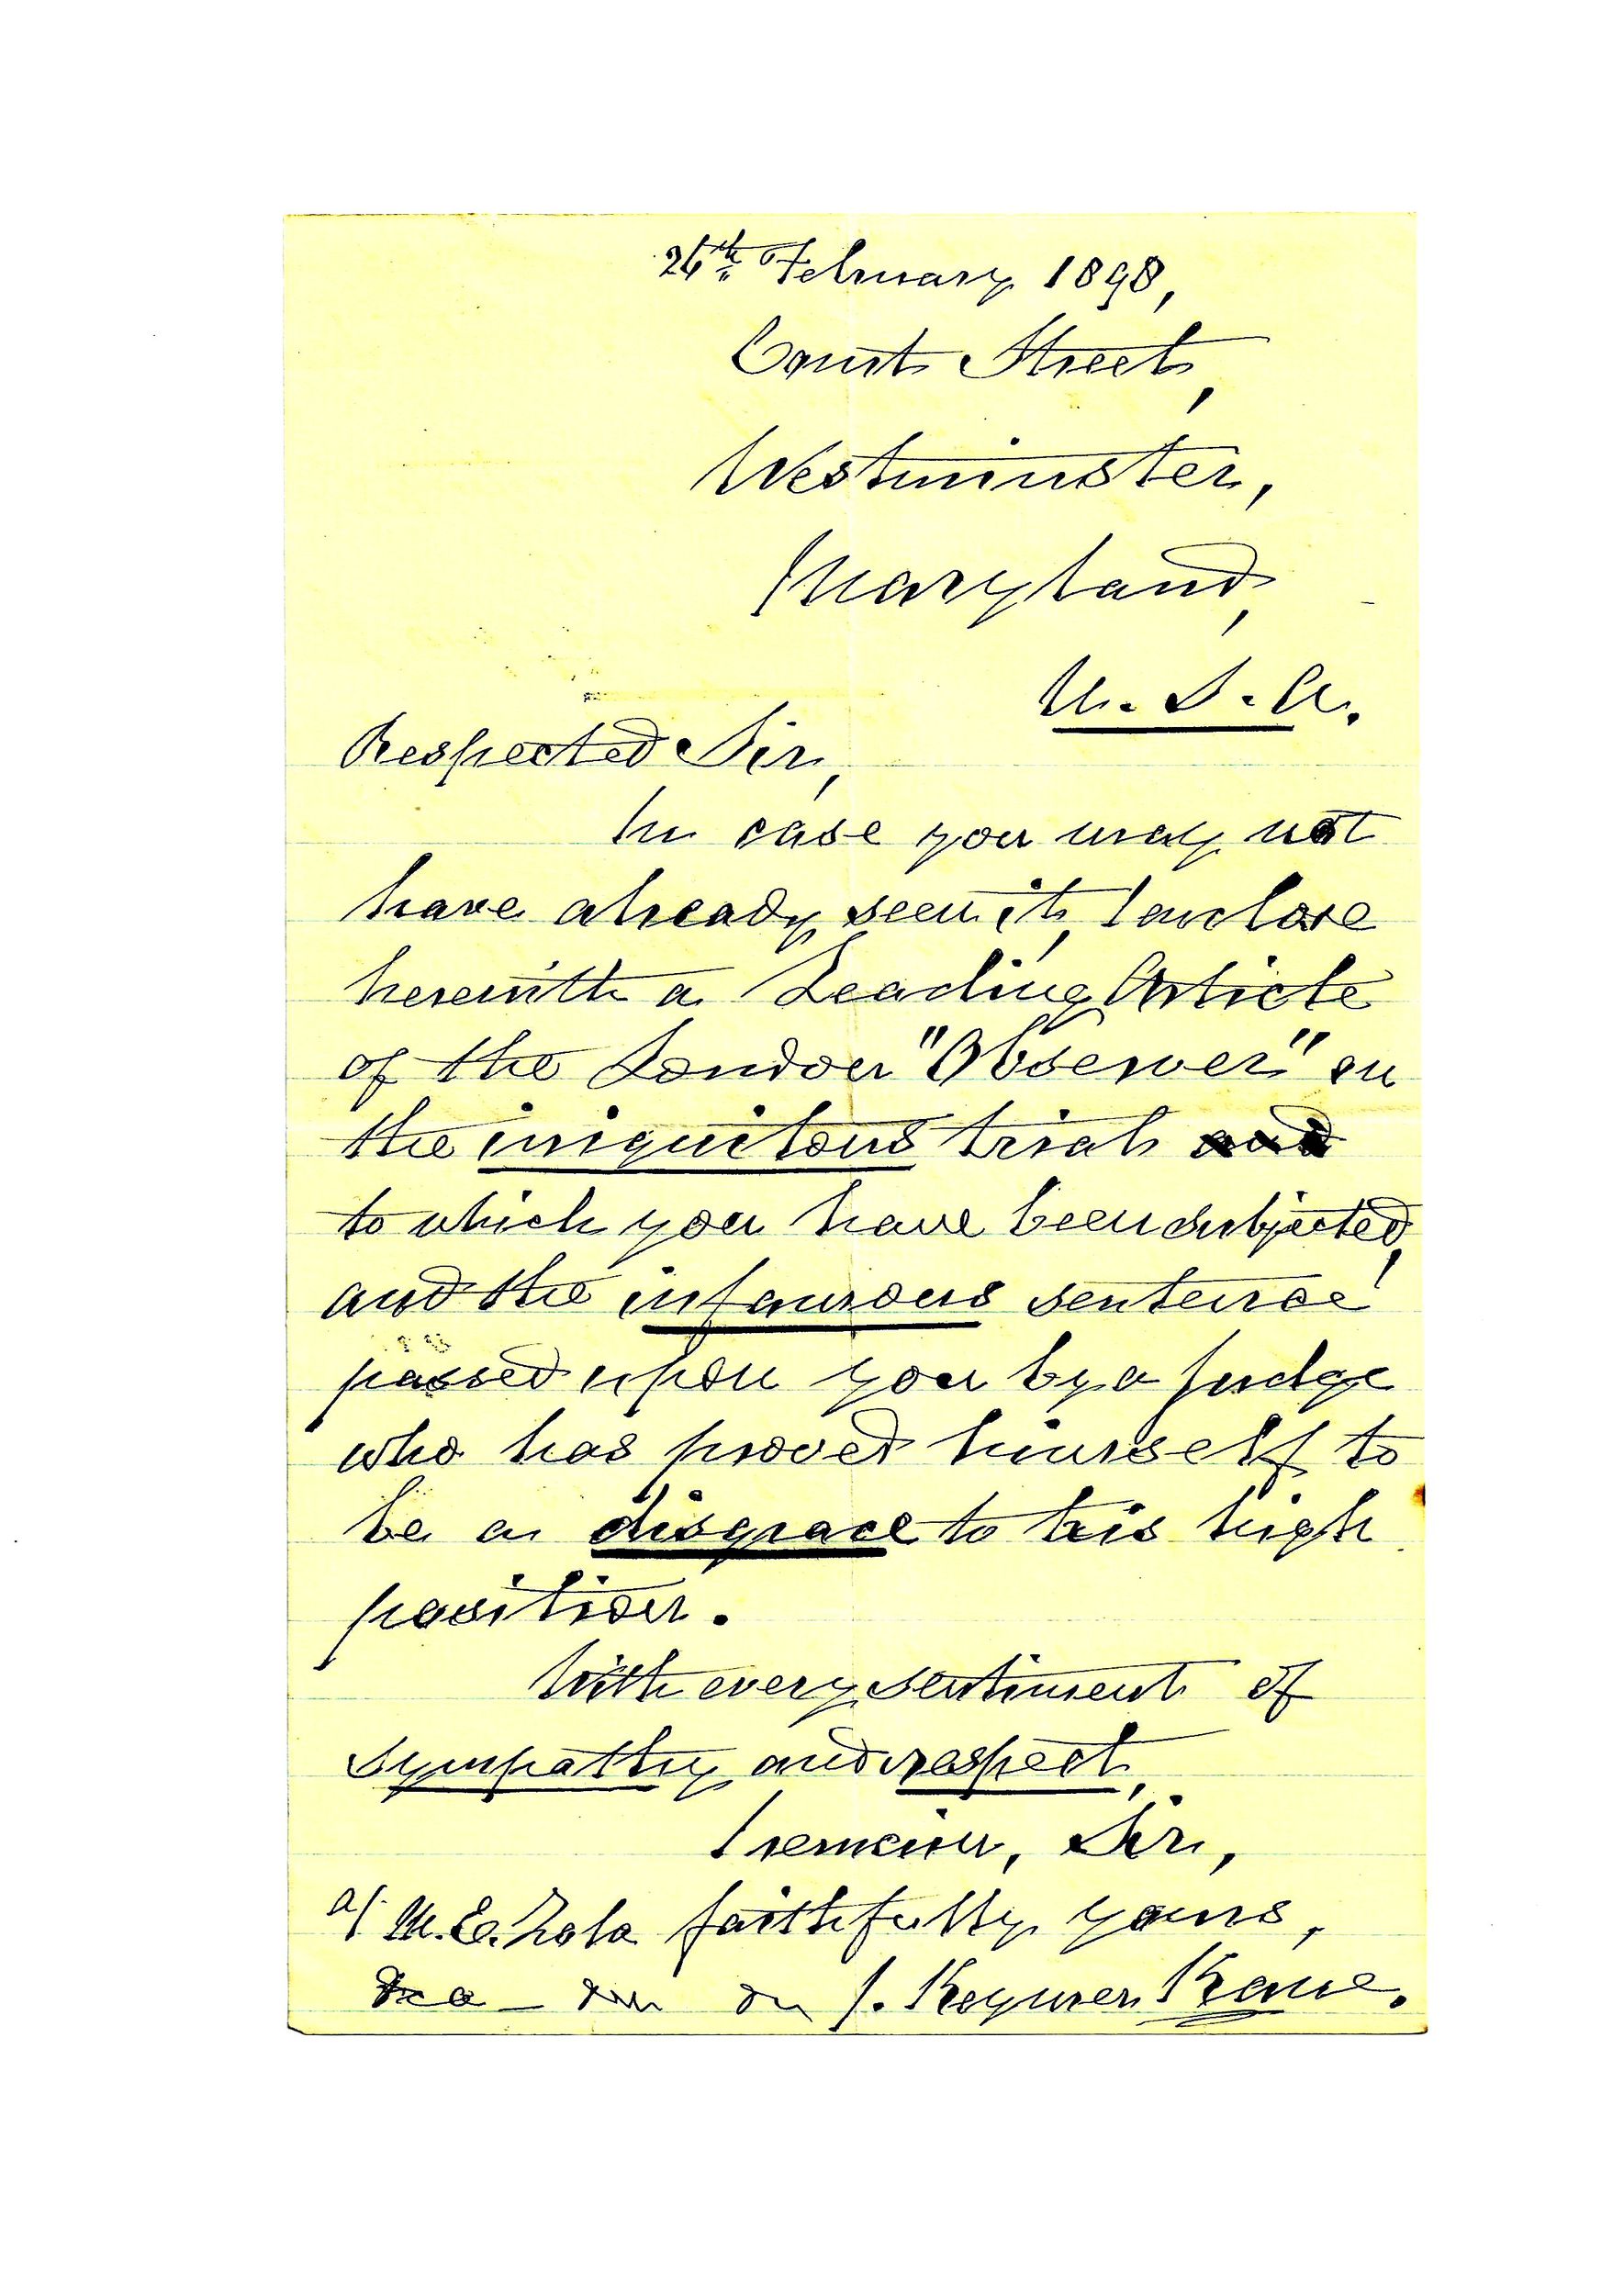 26th February 1898,
Court Street,
Westminster,
Maryland,
U. S. A.
Respected Sir,
In case you may not
have already seen it, I enclose
herewith a Leading Article
of the London "Observer" on
the iniquitous trial and
to which you have been subjected,
and the infamous sentence
passed upon you by a Judge
who has proved himself to
be a disgrace to his high
position.
With every sentiment of
sympathy and respect,
I remain, Sir,
a/ M. E. Zola faithfully yours,
J. Keymer Keane.